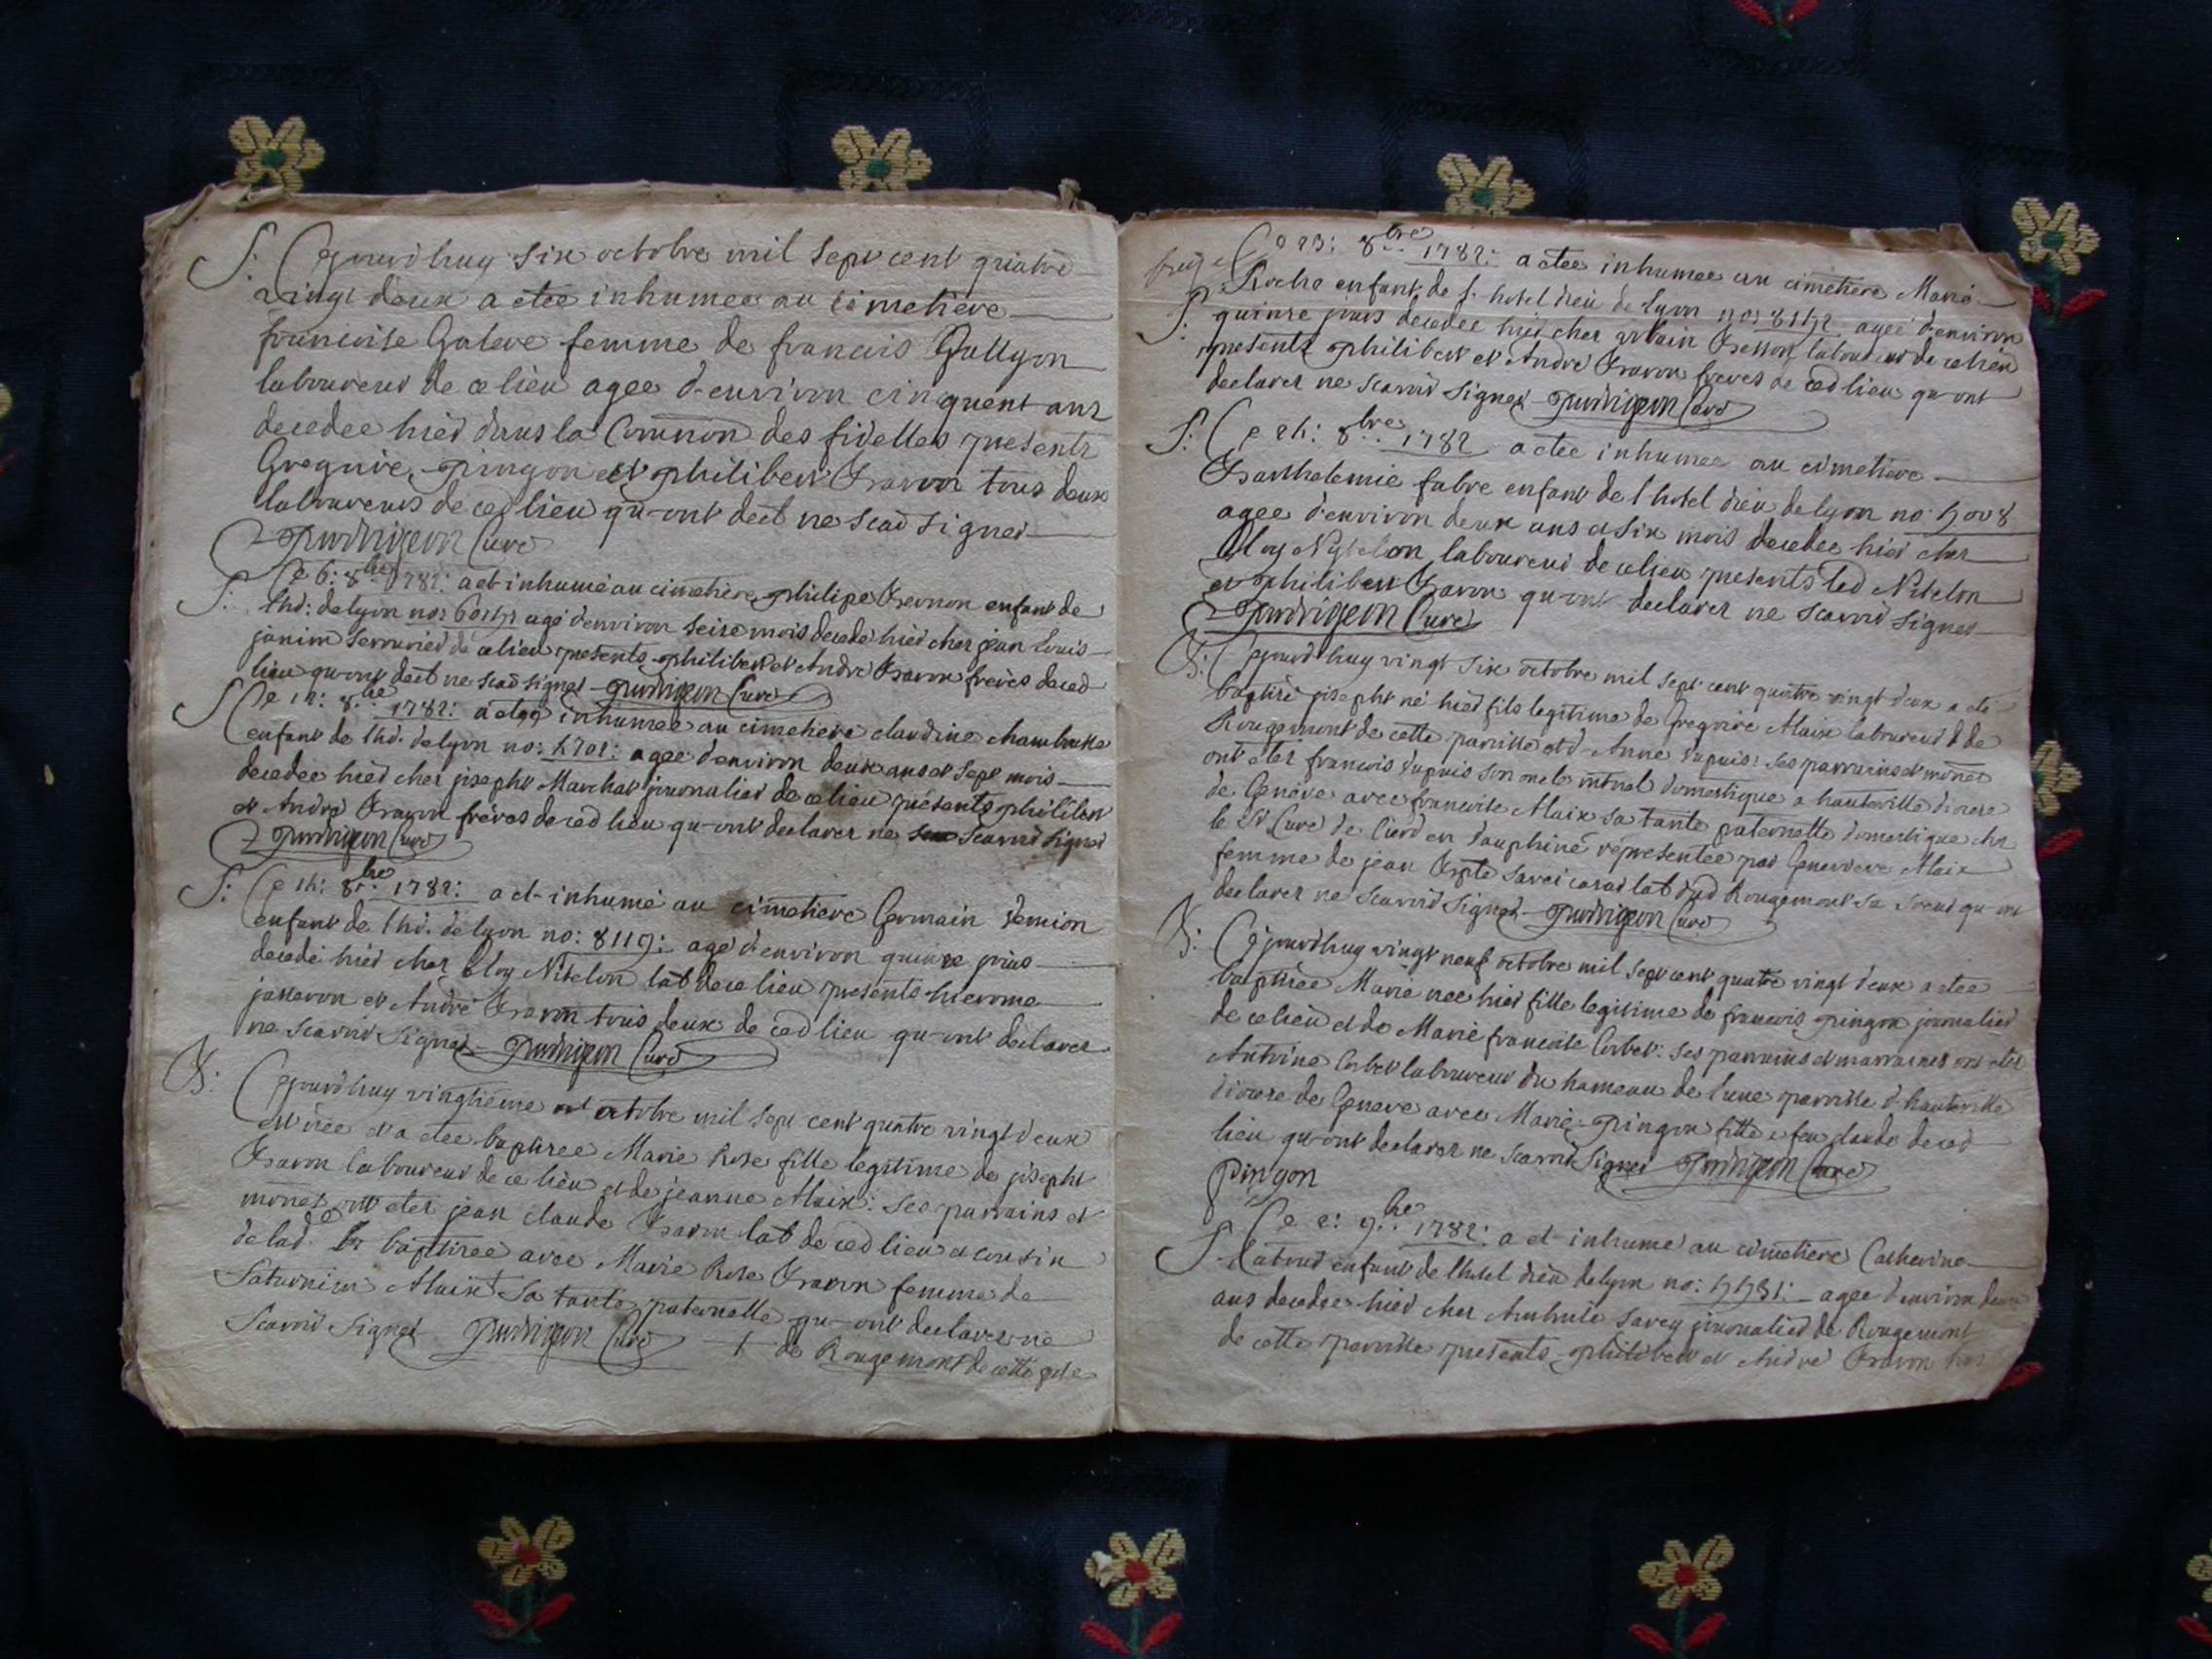 S. Cejourdhuy six octobre mil sept cent quatre
vingt deux a etee inhumee au cimetiere
francoise femme de francois Gullyon
laboureur de ce lieu agee d-environ cinquent ans
decedee hier dans la Comm̄on des fidelles presents
Gregoire pingon et philibert Travon tous deux
laboureurs de ced lieu qu-ont declt ne scav signer
Curé
S. Ce 6: 8bre 1782: a et inhumé au cimetiere philipe enfant de
lhd: de lyon no: agé d'environ seize mois decedé hier chez jean Louis
janim serrurier de ce lieu presents philibert et André Travon frères de ced
lieu qu-ont declt ne scav signer Curé
S Ce 12: 8bre 1782: a etee inhumee au cimetiere claudine
enfant de lhd. de lyon no: agee d'environ deux ans et sept mois
decedee hier chez joseph Marchat journalier de ce lieu présents philibert
et André Travon frères de ced lieu qu-ont declarer ne scavoir signer
Curé
S: Ce 14: 8bre 1782: a et-inhumé au cimetiere Germain
enfant de lhd. de lyon no: 8119: agé d'environ quinze jours
decedé hier chez Eloy Nitelon lab de ce lieu presents hierome
et André Travon tous deux de ced lieu qu-ont declarer
ne scavoir signer Curé
B: Cejourdhuy vingtieme octobre mil sept cent quatre vingt deux
est nee et a etee baptisee Marie Rose fille legitime de joseph
Travon laboureur de ce lieu et de jeanne Alaix: ses parrains et
mōnes ont etez jean claude Travon lab de ced lieu et cousin
de lad. baptisee avec Marie Rose Travon femme de
Saturnin Alaix sa tante paternelle qu-ont declarer ne
scavoir signer Curé + de Rougemont de cette psse
Ce 23: 8bre 1782: a etee inhumee au cimetiere Marie
S: Roche enfant de l. hotel dieu de lyon no: agee d'environ
quinze jours decedee hier chez laboureur de ce lieu
presents philibert et André Travon freres de ced lieu qu-ont
declarer ne scavoir signer Curé
S: Ce 24: 8bre 1782 a etee inhumee au cimetiere
Barthelemie fabre enfant de l hotel dieu de lyon no
agee d'environ deux ans et six mois decedee hier chez
Eloy Nitelon laboureur de ce lieu presents led Nitelon
et philibert Travon qu-ont declarer ne scavoir signer
Curé
B: Cejourdhuy vingt six octobre mil sept cent quatre vingt deux a eté
baptisé joseph né hier fils legitime de Gregoire Alaix laboureur de
Rougemont de cette paroisse et d-Anne Dupuis: ses parrains et mōnes
ont etez francois Dupuis son oncle domestique a hauteville diocese
de Genève avec francoise Alaix sa tante paternelle domestique chez
le Sr Curé de en Dauphiné representee par Genevieve Alaix
femme de jean lab dud Rougemont sa soeur qu-ont
declarer ne scavoir signer Curé
B: Cejourdhuy vingt neuf octobre mil sept cent quatre vingt deux a etee
baptisee Marie nee hier fille legitime de francois pingon journalier
de ce lieu et de Marie francoise Corbet: ses parrains et marraines ont etez
Antoine Corbet laboureur du hameau de paroisse d'hauteville
diocese de Geneve avec Marie pingon fille feu claude de ced
lieu qu-ont declarer ne scavoir signer Curé
pingon
S Ce 2: 9bre 1782: a et-inhumé au cimetiere Catherine
enfant de l hotel dieu de lyon no: agee d'environ deux
ans decedee hier chez journalier de Rougemont
de cette paroisse presents philibert et André Travon